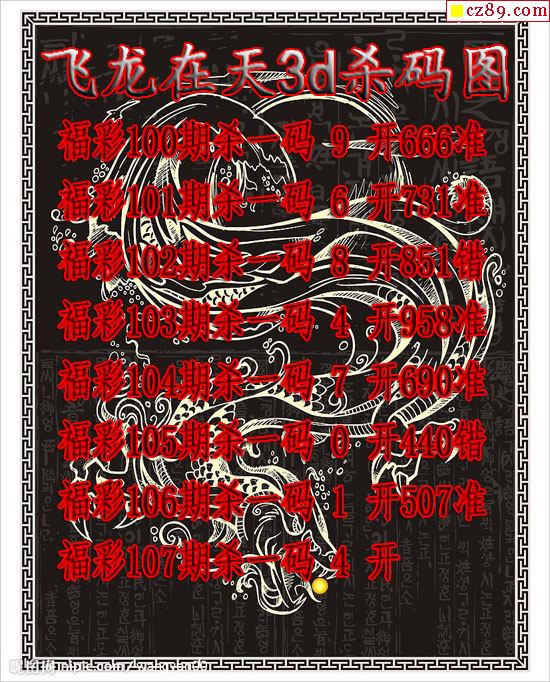 cz89.com
飞龙在天3d杀码图
福彩100期杀一码 9 开666准
福彩101期杀一码 6 开731准
福彩102期杀一码 8 开851错
福彩103期杀一码 4 开958准
福彩104期杀一码 7 开690准
福彩105期杀一码 0 开440错
福彩106期杀一码 1 开507准
福彩107期杀一码 4 开